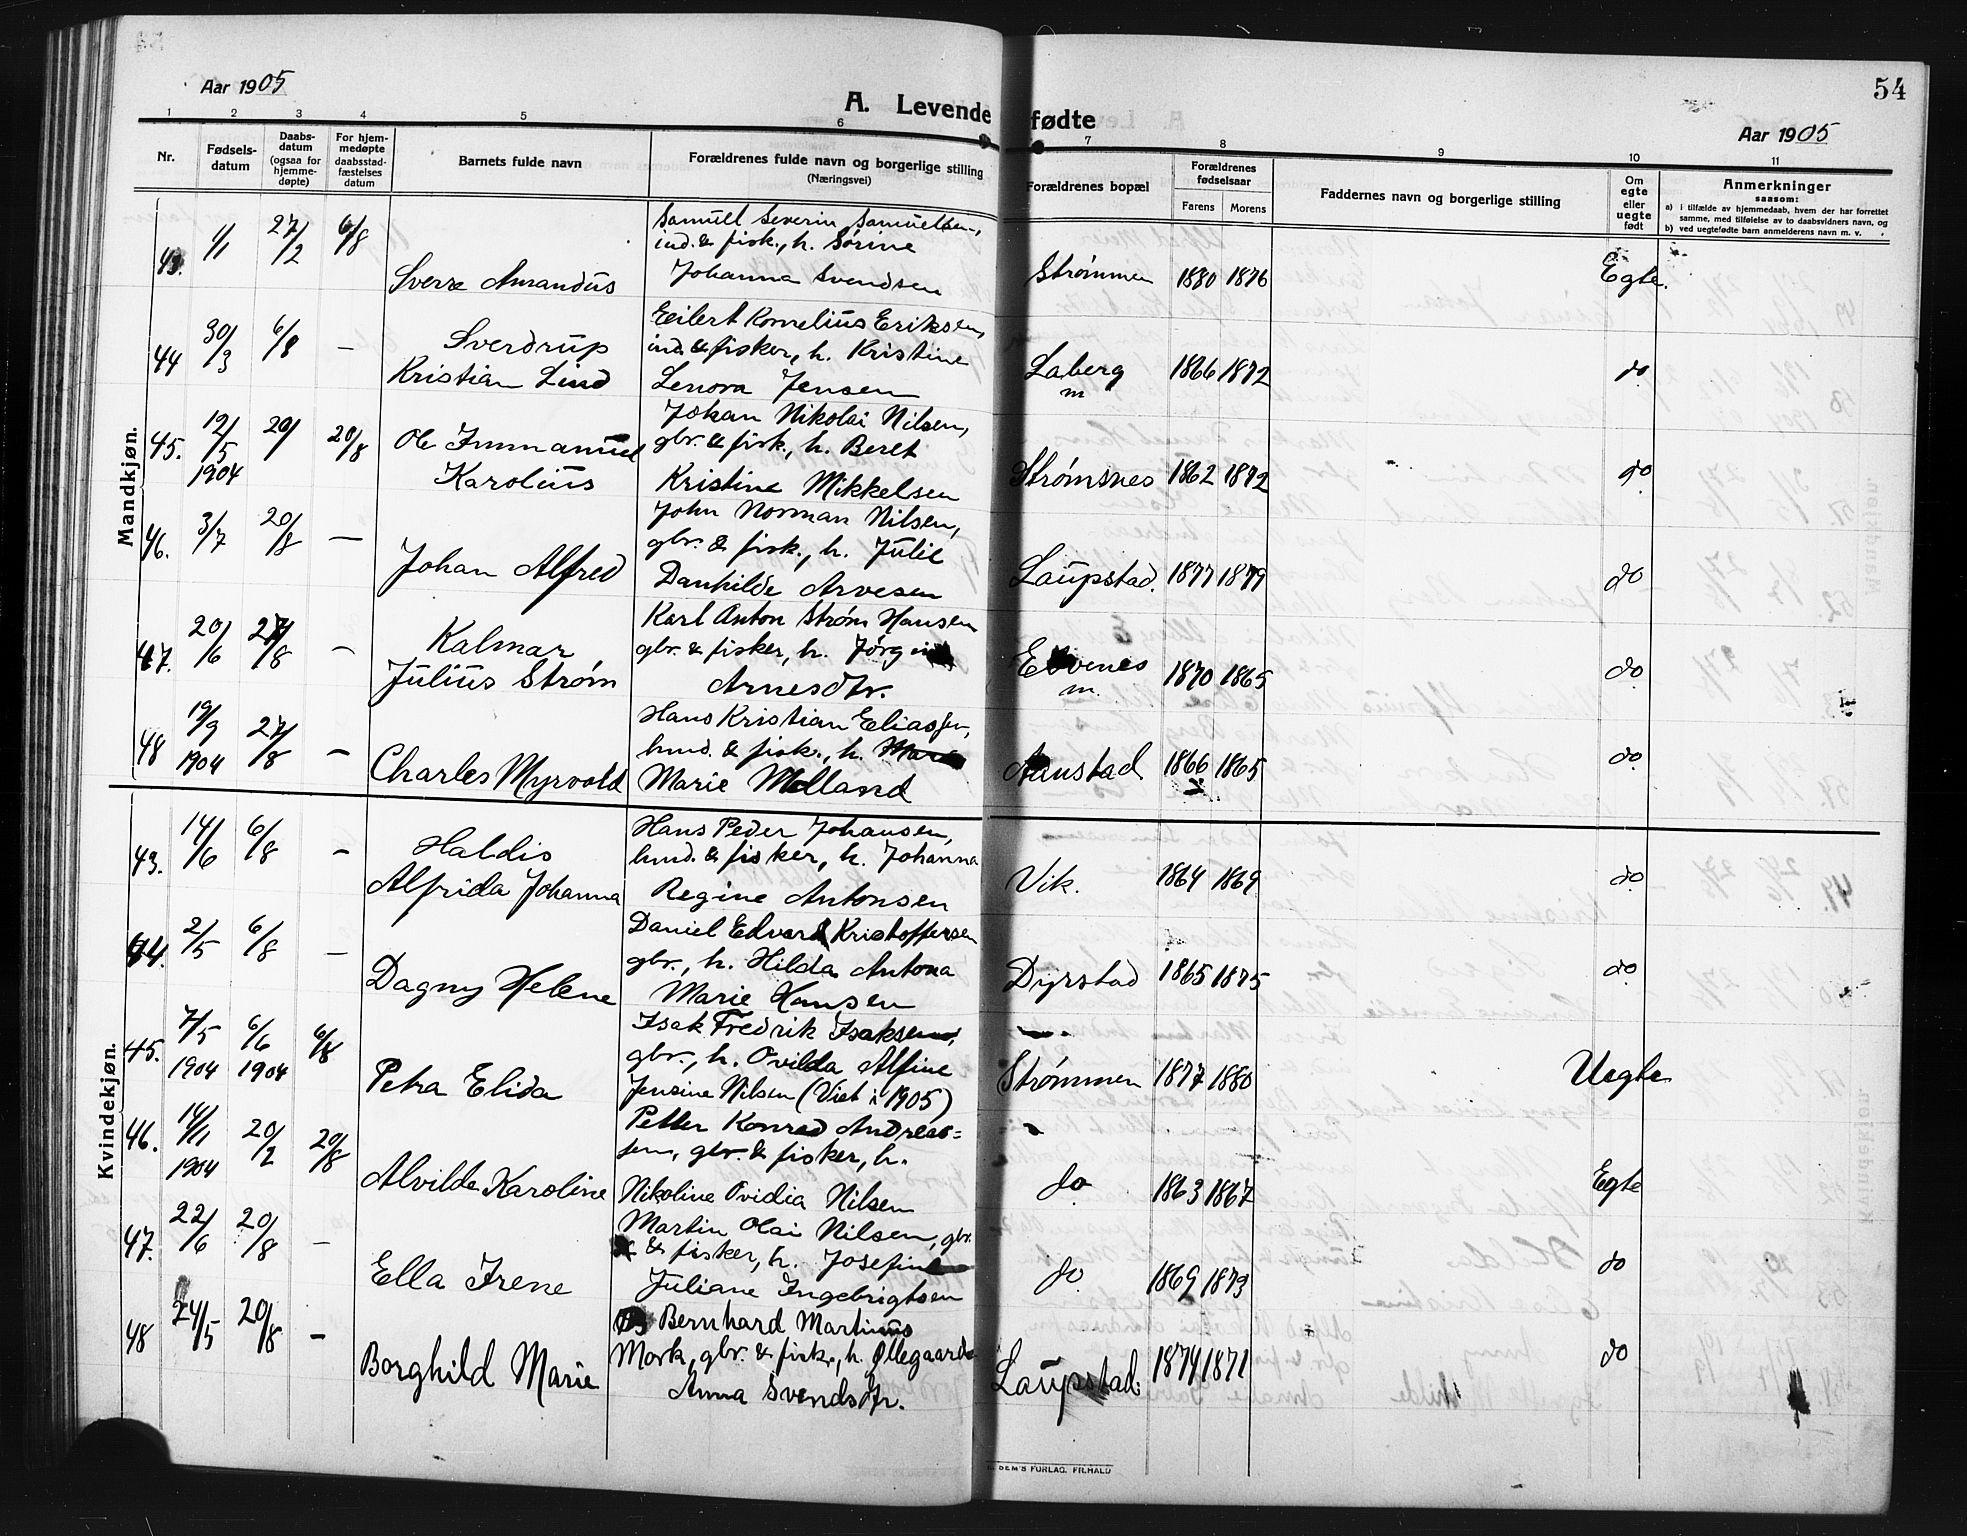 Aar 1905
A. Levende fødte
54
Aar 1905
1 2 3 4 5 6 7 8 9 10 11
Nr.
Fødselsdatum
Daabsdatum
(ogsaa for hjemmedøpte)
For hjemmedøpte
daabsstadfæstelses
datum
Barnets fulde navn
Forældrenes fulde navn og borgerlige stilling
(Næringsvei)
Forældrenes bopæl
Forældrenes
fødselsaar
Farens Morens
Faddernes navn og borgerlige stilling
Om
egte
eller
uegte
født
Anmerkninger
saasom:
a) i tilfælde av hjemmedaab, hvem der har forrettet
samme, med tilføielse av to daabsvidners navn, og
b) ved uegtefødte barn anmelderens navn m. v.
Mandkjøn.
43. 1/1 27/2 6/8 Sverre Amandus
Samuel Severin Samuelsen,
ind. & fisk., h. Sørine
Johanna Svendsen
Strømmen 1880 1876 Egte.
44 30/3 6/8 —
Sverdrup
Kristian Lind
Eilert Kornelius Eriksen,
ind. & fisker, h. Kristine
Lenora Jensen
Laberg
m
1866 1872 do.
45. 12/5 1904 20/ 20/8
Ole Immanuel
Karolius
Johan Nikolai Nilsen,
gbr. & fisk., h. Beret
Kristine Mikkelsen
Strømsnes 1862 1872 do.
46. 3/7 20/8 — Johan Alfred
John Norman Nilsen,
gbr. & fisk., h. Julie
Danhilde Arvesen
Laupstad. 1877 1879 do
47. 20/6 27/8 —
Kalmar
Julius Strøm
Karl Anton Strøm Hansen
gbr. & fisker, h. Jørgin
Arnesdtr.
Evenes
m.
1870 1865 do.
48 19/9 1904 27/8 — Charles Myrvold
Hans Kristian Eliassen,
hmd. & fisk., h.
Marie Molland
Aanstad 1866 1865 do.
Kvindekjøn.
43. 14/6 6/8 —
Haldis
Alfrida Johanna
Hans Peder Johansen,
hmd. & fisker, h. Johanna
Regine Antonsen
Vik. 1864 1869 do.
44. 2/5 6/8 — Dagny Helene
Daniel Edvard Kristoffersen
gbr., h. Hilda Antona
Marie Hansen
Dyrstad 1865 1875 do.
45. 7/5 1904 6/6 1904 6/8 Petra Elida
Isak Fredrik Isaksen,
gbr., h. Ovilda Alfine
Jensine Nilsen (Viet i 1905)
Strømmen 1877 1880 Uegte
46. 14/11 1904 20/2 20/8 Alvilde Karoline
Petter Konrad Andreas=
sen, gbr. & fisker, h.
Nikoline Ovidia Nilsen
do. 1863 1867 Egte
47. 22/6 20/8 — Ella Irene
Martin Olai Nilsen, gbr.
& fisker, h. Josefine
Juliane Ingebrigtsen
do. 1869 1873 do
48 24/5 20/8 — Borghild Marie
Bernhard Martinus
Mork, gbr. & fisk., h. Øllegaarda
Anna Svendsdtr.
Laupstad. 1874 1871 do
SEM'S FORLAG, FR.HALD